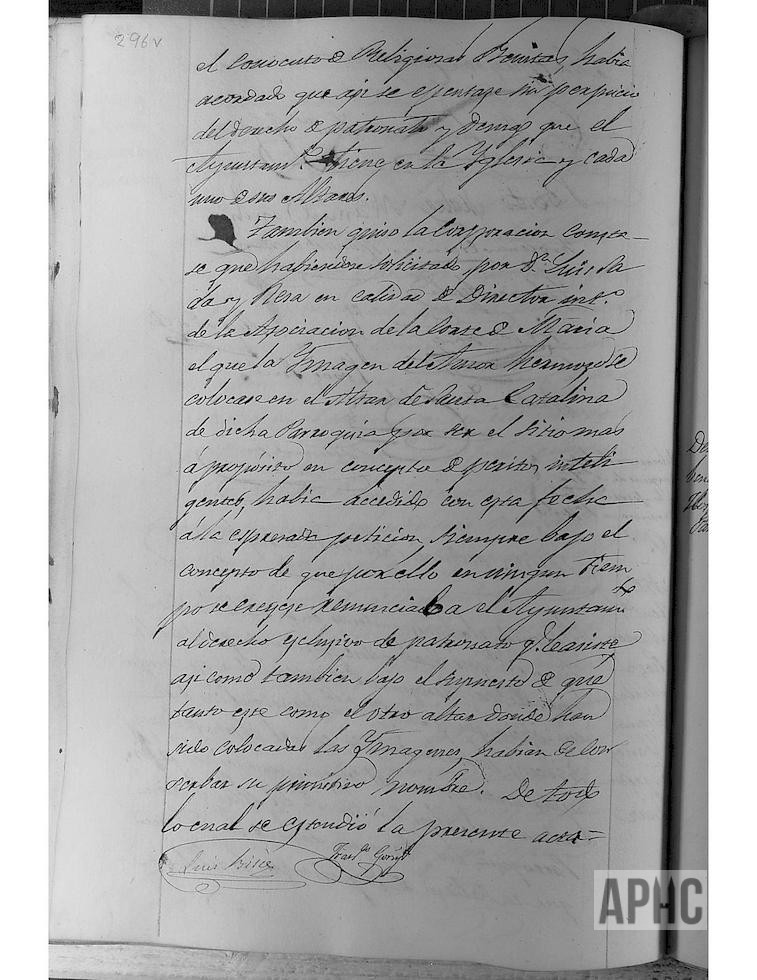 296v
el Conocuto de Religiosas Benitas, habia
acordado que asi se egecutase sin perjuicio
del derecho de patronato y demas que el
Ayuntam.to tiene en la Yglesia y cada
uno de sus Altares.
Tambien quiso la Corporacion consta-
se que habiendose solicitado por D.n Luis
da y Resa en calidad de Director int.o
de la Asociacion de la Corte de Maria
el que la Ymagen del Amor hermoso se
colocase en el Altar de Santa Catalina
de dicha Parroquia por ser el sitio mas
á proposito en concepto de peritos inteli
gentes, habia accedido con esta fecha
á la espresada peticion siempre bajo el
concepto de que por ello en ningun tiem
po se creyese renunciaba el Ayuntam.to
al derecho esclusivo de patronato q.e le asiste
asi como tambien bajo el supuesto de que
tanto este como el otro altar donde han
sido colocadas las Ymagenes, habian de con
serbar su primitivo nombre. De todo
lo cual se estendió la presente acta=
Luis
APHC